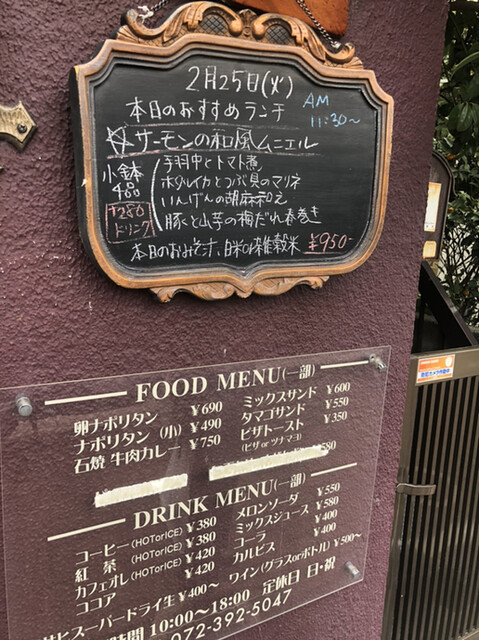 2月25日(火)
本日のおすすめランチ
AM
11:30~
☆サーモンの和風ムニエル
小鉢
4品
手羽中とトマト煮
ホタルイカとつぶ貝のマリネ
いんげんの胡麻和え
豚と山芋の梅だれ春巻き
+250
ドリンク
本日のおみそ汁、白米or雑穀米 ¥950-
FOOD MENU(一部)
卵ナポリタン ¥690
ナポリタン (小) ¥490
石焼 牛肉カレー ¥750
ミックスサンド ¥600
タマゴサンド ¥550
ピザトースト ¥350
(ピザ or ツナマヨ)
580
DRINK MENU(一部)
コーヒー(HOTorICE) ¥380
紅 茶 (HOTorICE) ¥380
カフェオレ(HOTorICE) ¥420
ココア ¥420
メロンソーダ ¥550
ミックスジュース ¥580
コーラ ¥400
カルピス ¥400
サヒスーパードライ生 ¥400~
ワイン(グラスorボトル) ¥500~
時間 10:00~18:00 定休日 日・祝
072-392-5047